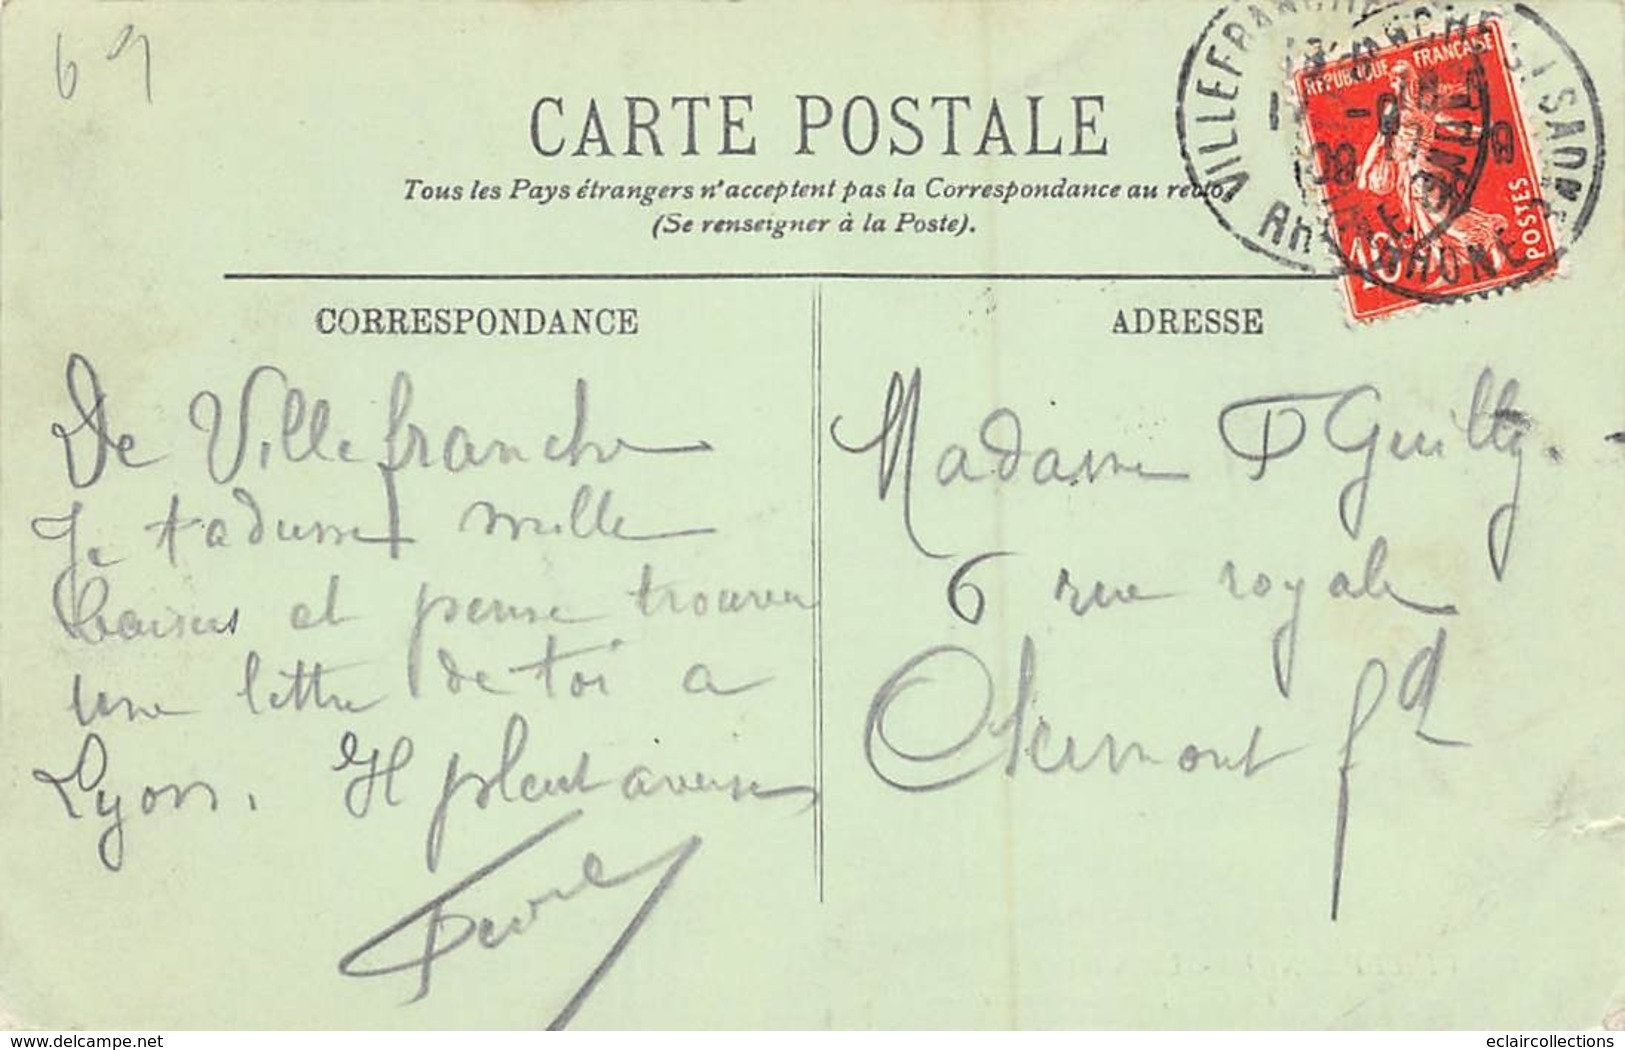 69
CARTE POSTALE
Tous les Pays étrangers n'acceptent pas la Correspondance au recto.
(Se renseigner à la Poste).
REPUBLIQUE FRANÇAISE
POSTES
10
VILLEFRANCHE S/SAONE
RHONE
CORRESPONDANCE
De Villefranche
Je t'adresse mille
baisers et pense trouver
une lettre de toi a
Lyon. Il pleut averse
ADRESSE
Madame P Guilty.
6 rue royale
Clermont fd
delcampe.net
eclaircollections